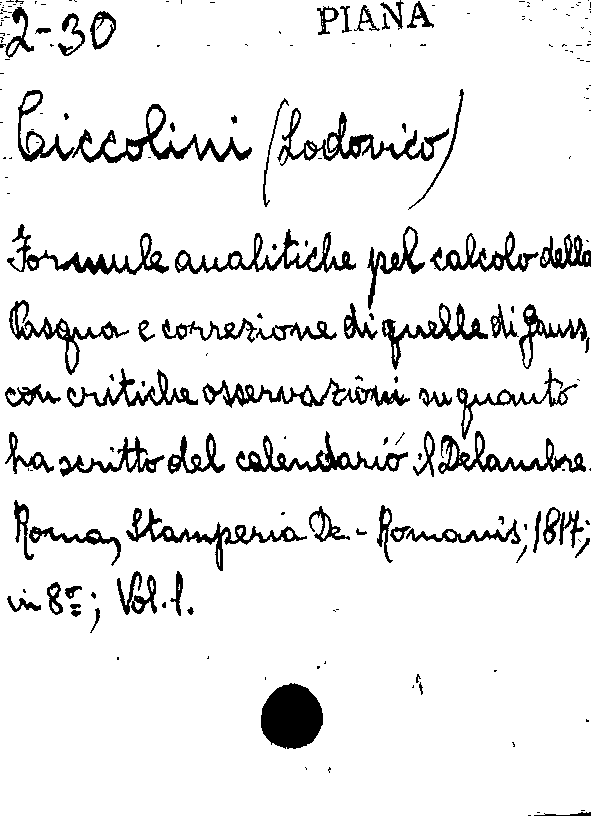 2-30
PIANA
Ciccolini (Lodovico)
Formule analitiche pel calcolo della
Pasqua e correzione di quelle di Gauss,
con critiche osservazioni su quanto
ha scritto del calendario il Delambre.
Roma, Stamperia De-Romanis; 1817;
in 8º; Vol. 1.